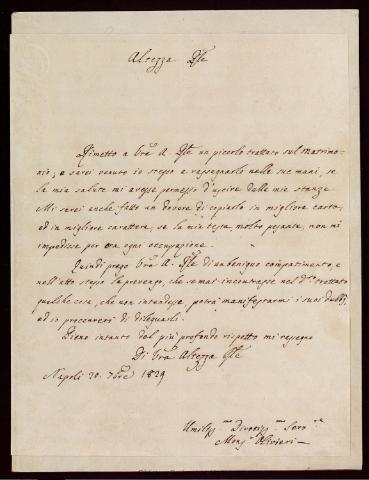 Altezza Rle
Rimetto a Vra A. Rle un piccolo trattato sul Matrimo-
nio, e sarei venuto io stesso a rassegnarlo nelle sue mani, se
la mia salute mi avesse permesso d'uscire dalle mie stanze.
Mi sarei anche fatto un dovere di copiarlo in migliore carta,
ed in migliore carattere, se la mia testa, molto pesante, non mi
impedisse per ora ogni occupazione.
Quindi prego Vra A. Rle di un benigno compatimento, e
nell'atto stesso la prevengo, che se mai incontrasse nel do trattato
qualche cosa, che non intendesse, potrà manifestarmi i suoi dubbj,
ed io procurerò di dileguarli.
Pieno intanto del più profondo rispetto mi rassegno
Di Vra Altezza Rle
Napoli 20. 7bre 1829
Umiliss mo Divotiss mo Serv re
Monsr Olivieri